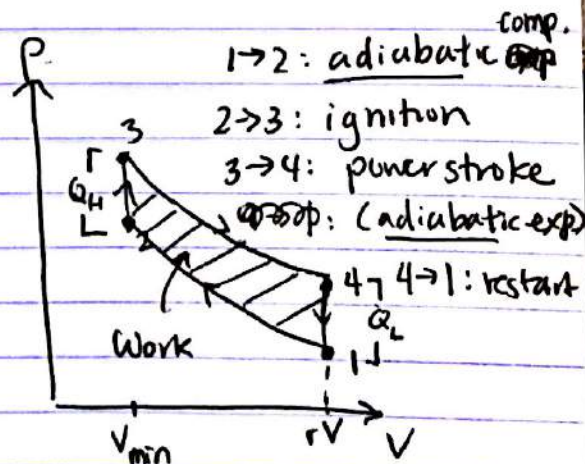 comp.
1→2: adiabatic
2→3: ignition
3→4: power stroke
(adiabatic exp)
4→1: restart
P
3
Q_H
2
4
Q_L
1
Work
V_min
rV
V